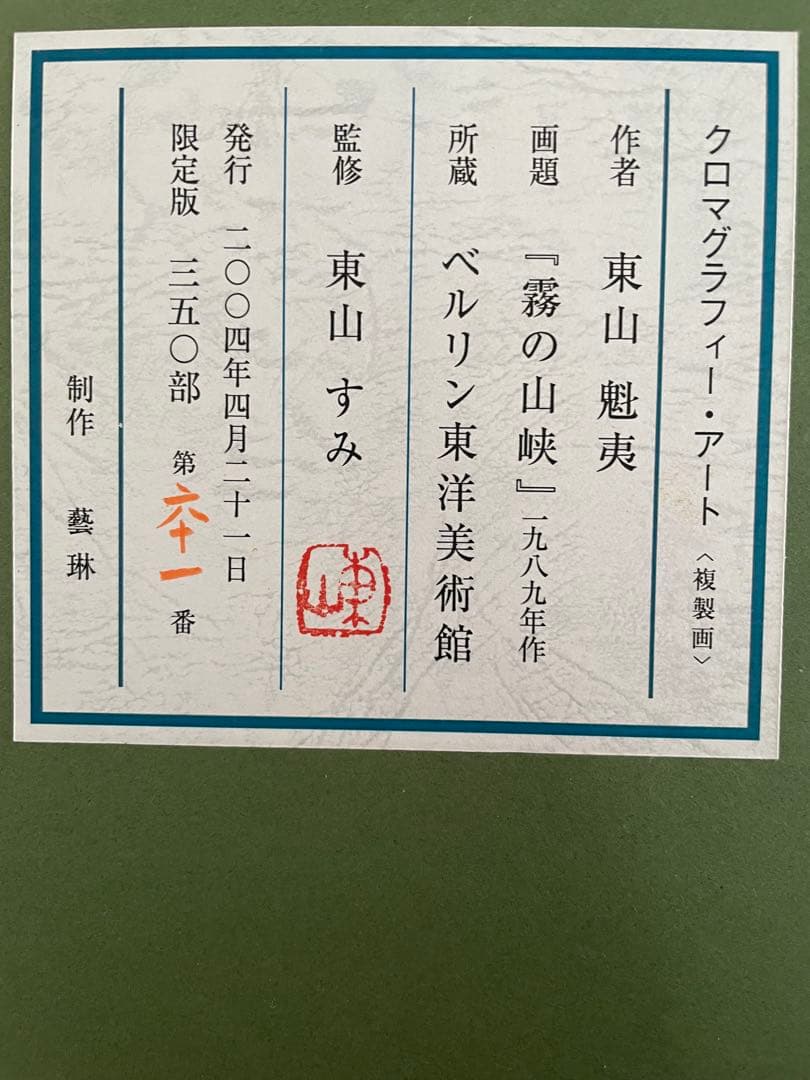 クロマグラフィー・アート〈複製画〉
作者 東山 魁夷
画題 『霧の山峡』一九八九年作
所蔵 ベルリン東洋美術館
監修 東山 すみ
東山
発行 二〇〇四年四月二十一日
限定版 三五〇部 第六十一番
制作 藝琳